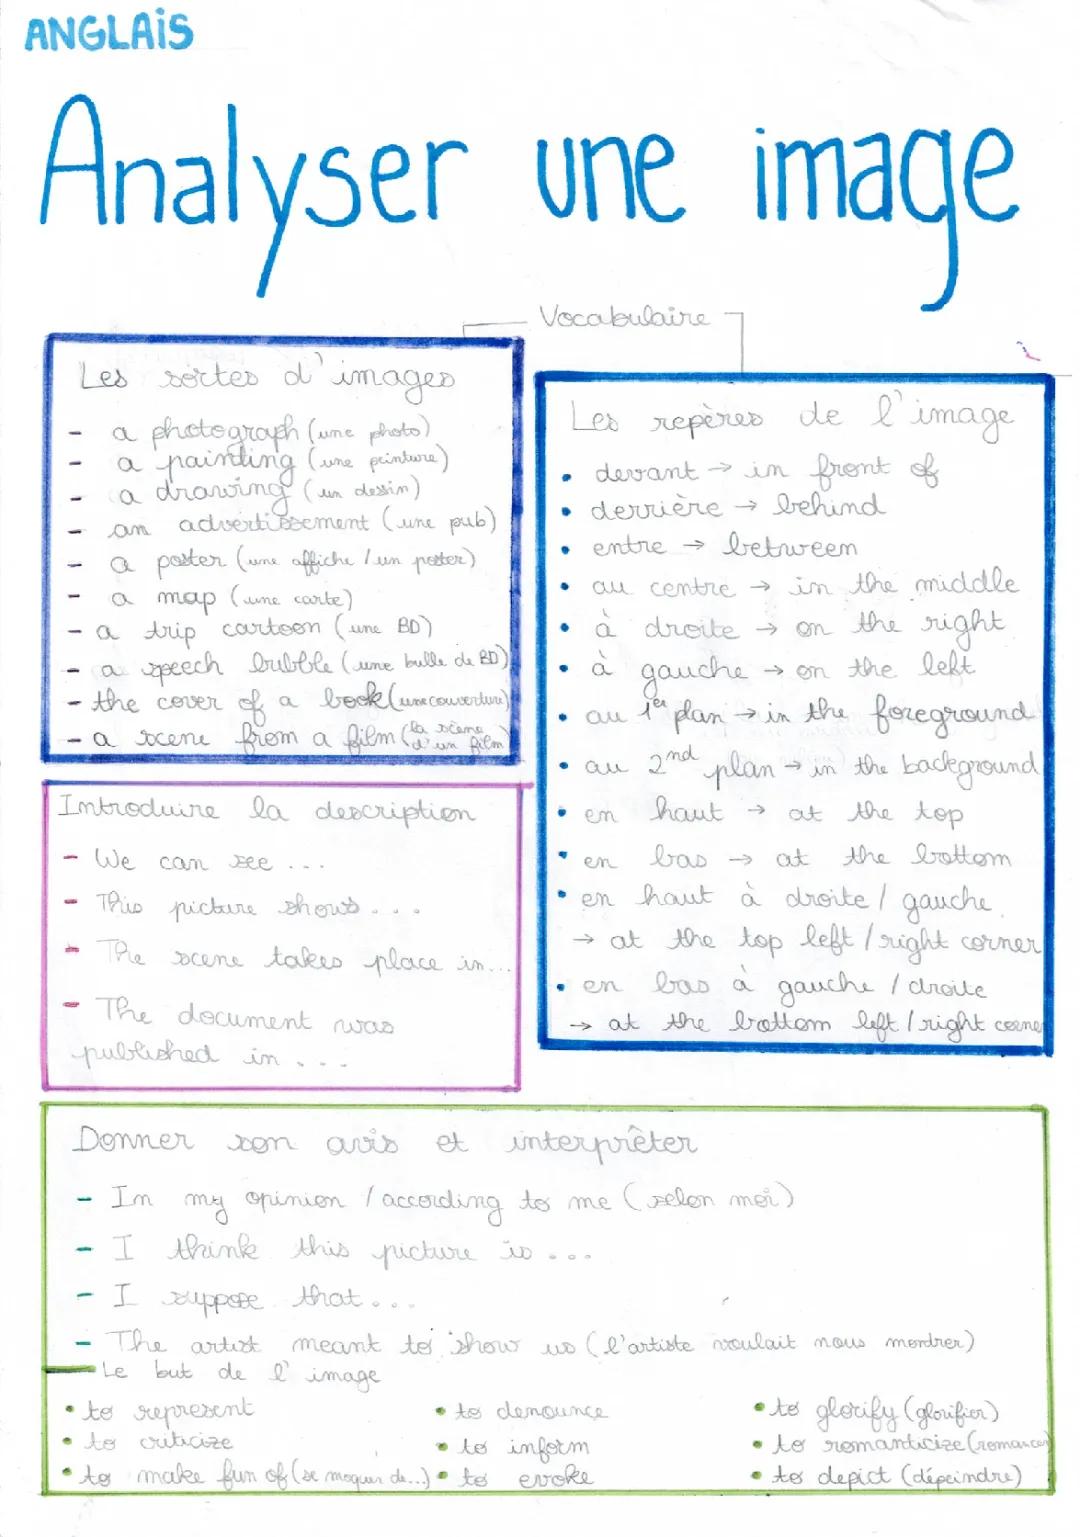 ANGLAIS
Analyser une image
Vocabulaire
Les sortes d'images
- a photograph (une photo)
- a painting (une peinture)
- a drawing (un dessin)
- an advertissement (une pub)
- a poster (une affiche / un poster)
- a map (une carte)
- a trip cartoon (une BD)
- a speech bubble (une bulle de BD)
- the cover of a book (une couverture)
- a scene from a film (la scène d'un film)
Les repères de l'image
• devant → in front of
• derrière → behind
• entre → between
• au centre → in the middle
• à droite → on the right
• à gauche → on the left
• au 1er plan → in the foreground
• au 2nd plan → in the background
• en haut → at the top
• en bas → at the bottom
• en haut à droite / gauche
→ at the top left / right corner
• en bas à gauche / droite
→ at the bottom left / right corner
Introduire la description
- We can see ...
- This picture shows ...
- The scene takes place in...
- The document was
published in ...
Donner son avis et interprêter
- In my opinion / according to me (selon moi)
- I think this picture is ...
- I suppose that ...
- The artist meant to show us (l'artiste voulait nous montrer)
Le but de l'image
• to represent
• to criticize
• to make fun of (se moquer de...)
• to denounce
• to inform
• to evoke
• to glorify (glorifier)
• to romanticize (romancer)
• to depict (dépeindre)